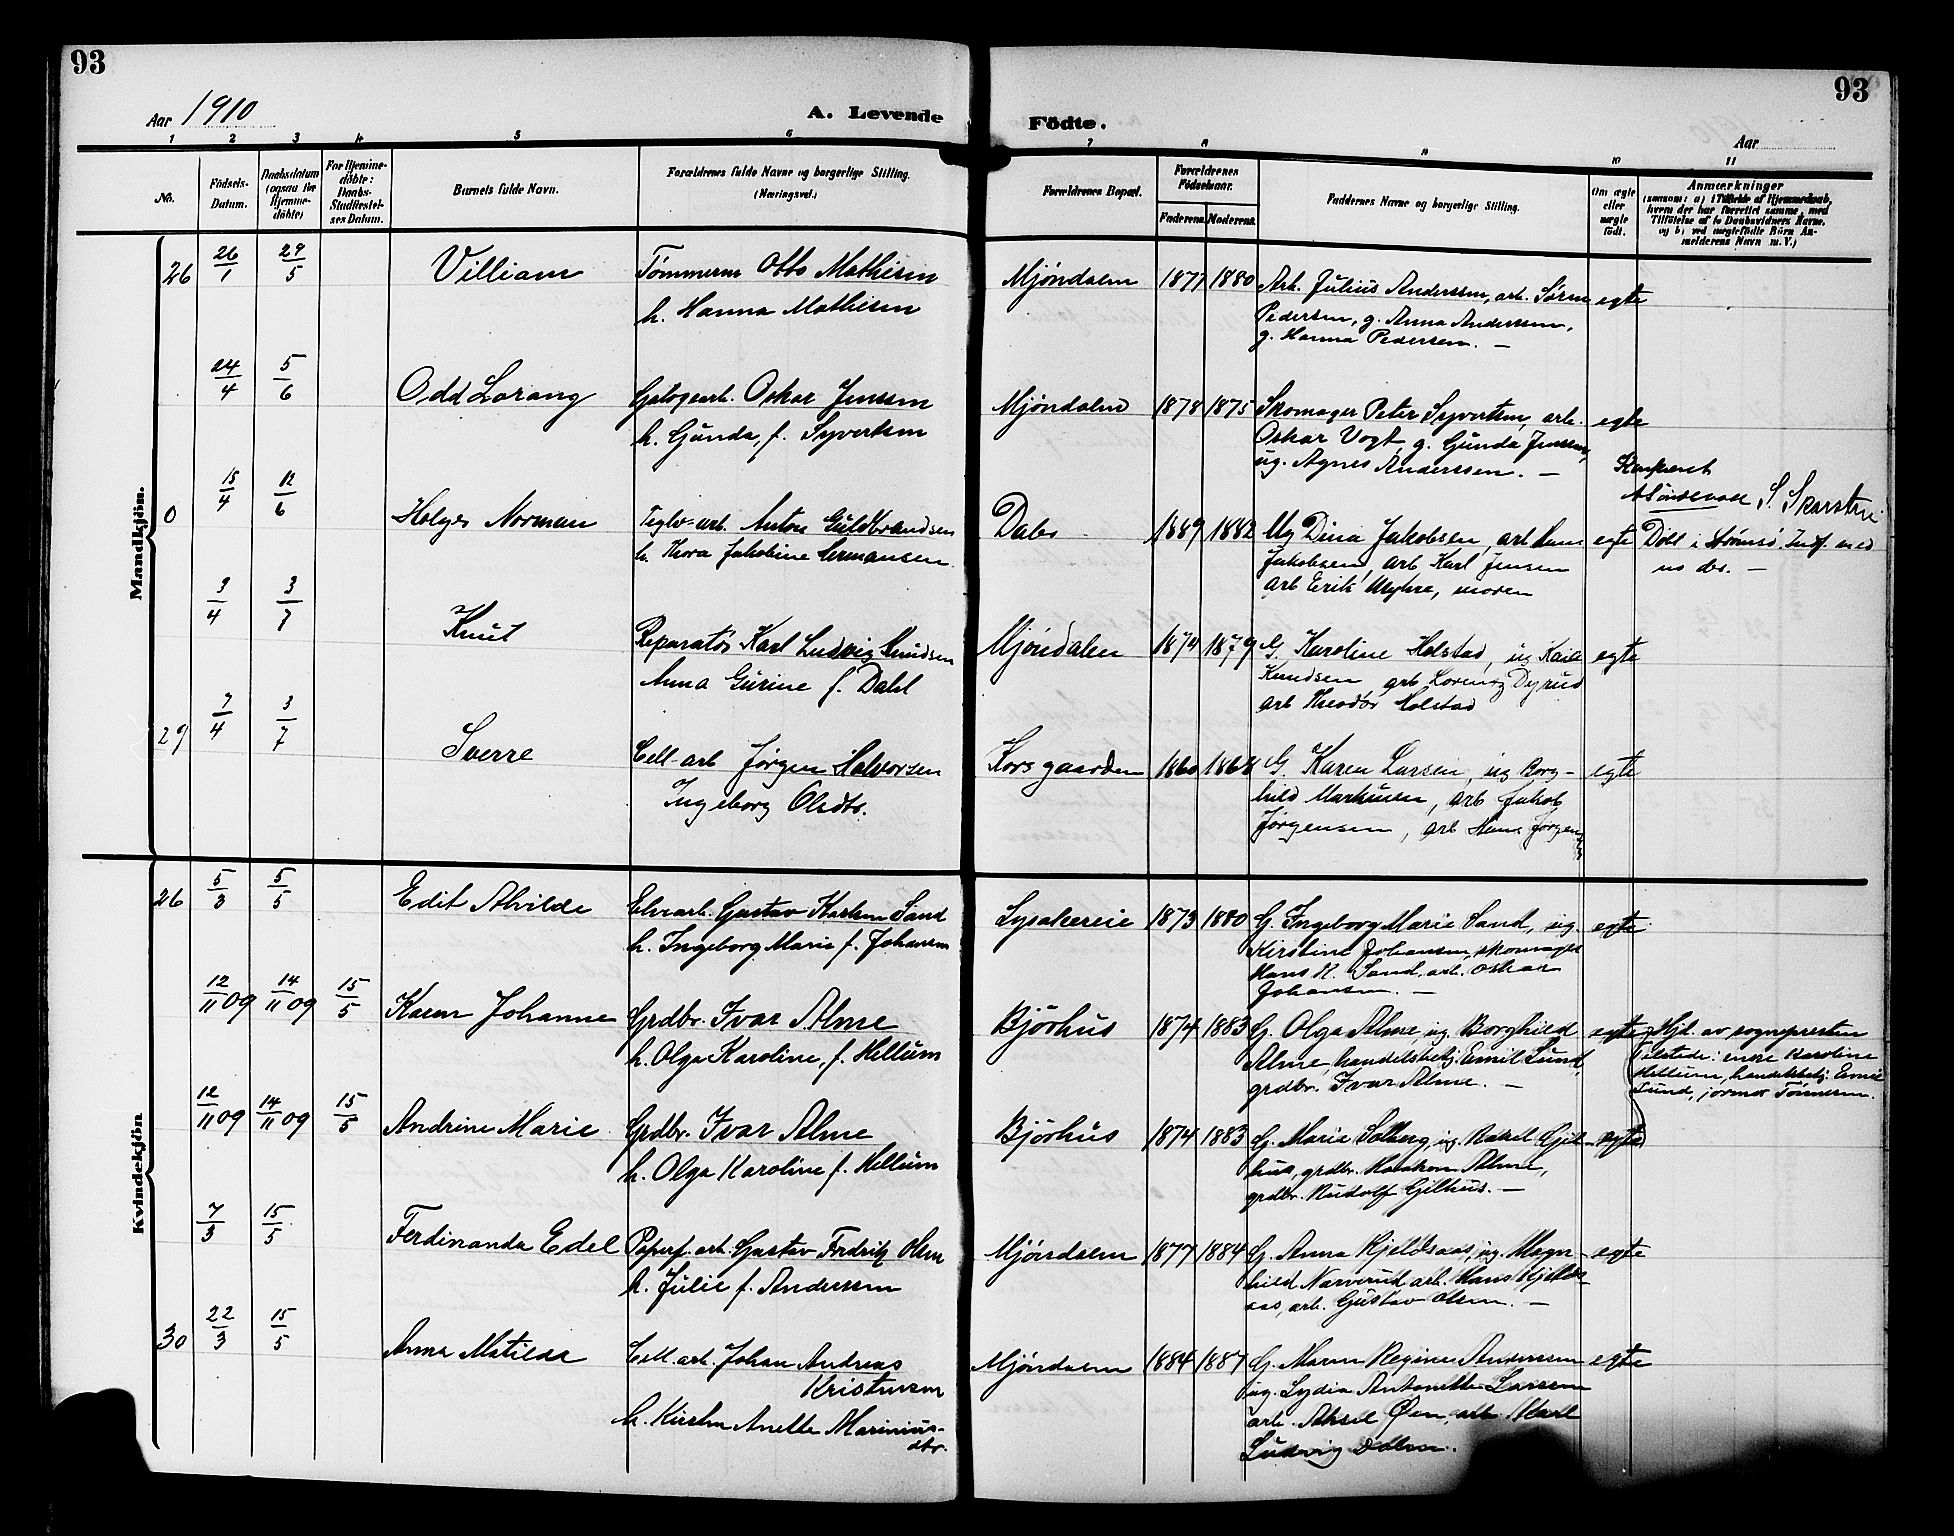 93
93
Aar 1910
A. Levende
Födte.
Aar
1 2 3 4 5 6 7 8 9 10 11
No.
Födsels-
Datum.
Daabsdatum
(ogsaa for
Hjemme-
döbte)
For Hjemme-
döbte:
Daabs-
Stadfæstel-
ses Datum.
Barnets fulde Navn.
Forældrenes fulde Navne og borgerlige Stilling.
(Næringsvei.)
Forældrenes Bopæl.
Forældrenes
Födselsaar.
Faderens. Moderens.
Faddernes Navne og borgerlige Stilling.
Om ægte
eller
uægte
født.
Anmærkninger
(saasom: a) i Tilfælde af Hjemmedaab,
hvem der har forrettet samme, med
Tilföielse af to Daabsvidners Navne,
og b) ved uægtefödte Börn An-
melderens Navn m. V.)
Mandkjön.
26
26/1
29/5
Villiam
Tømmerm Otto Mathisen
h. Hanna Mathisen
Mjøndalen
1877
1880
Arb. Julius Anderssen, arb. Søren
Pedersen, g. Anna Anderssen,
g. Hanna Pedersen. —
egte
24/4
5/6
Odd Lorang
Oskar Jenssen
h. Gunda, f. Syvertsen
Mjøndalen
1878
1875
Skomager Peter Syvertsen, arb.
Oskar Vogt, g. Gunda Jenssen,
ug. Agnes Anderssen. —
egte
0
15/4
12/6
Holger Norman
Teglv-arb. Anton Guldbrandsen
h. Thora Jakobine Hermansen
Dales
1889
1882
Ug Dina Jakobsen, arb
Jakobsen, arb Karl Jensen
arb Erik Myhre, moren
egte
S. Skarstein
Døbt i Strømsø. Indf. med
no ds. —
9/4
3/7
Knut
Reparatør Karl Ludvig Knudsen
Anna Gurine f. Dahl
Mjøndalen
1874
1879
G. Karoline Holstad, ug
Knudsen, arb Lorentz Dyrud
arb Theodor Holstad
egte
29
7/4
3/7
Sverre
Cell-arb Jørgen Halvorsen
Ingeborg Olsdtr.
Korsgaarden
1860
1868
G. Karen Larsen, ug Borg-
hild Markusen, arb Jakob
Jørgensen, arb Hans Jørgensen
egte
Kvindekjön
26
5/3
5/5
Edit Alvilde
Elvearb. Gustav Karlsen Sand
h. Ingeborg Marie f. Johansen
Lysakereie
1873
1880
G. Ingeborg Marie Sand, ug.
Kirstine Johansen, skomager
Hans K. Sand, arb. Oskar
Johansen. —
egte
12/11 09
14/11 09
15/5
Karen Johanne
Grdbr. Ivar Alme
h. Olga Karoline, f. Hellum
Bjørhus
1874
1883
G. Olga Alme, ug. Borghild
Alme, handelsbetj. Emil Lund,
grdbr. Ivar Alme. —
egte
Hjd. av sognepresten
tilstede: enke Karoline
Hellum, handelsbetj. Emil
Lund, jormor Tønnesen.
12/11 09
14/11 09
15/5
Andrine Marie
Grdbr. Ivar Alme
h. Olga Karoline f. Hellum
Bjørhus
1874
1883
G. Marie Solberg, ug. Rakel Gjel-
hus, grdbr. Haakon Alme,
grdbr. Rudolf Gjelhus. —
egte
7/3
15/5
Ferdinanda Edel
Papirf. arb. Gustav Fredrik Olsen
h. Julie f. Anderssen
Mjøndalen
1877
1884
G. Anna Kjeldsaas, ug. Magn-
hild Narverud, arb. Hans Kjelds-
aas, arb. Gustav Olsen. —
egte
30
22/3
15/5
Anna Matilde
Cell. arb. Johan Andreas
Kristensen
h. Kirsten Anette Marinius-
dtr.
Mjøndalen
1884
1887
G. Maren Regine Anderssen
ug. Lydia Antonette Larssen
arb. Aksel Øen, arb. Karl
Ludvig Olsen.
egte